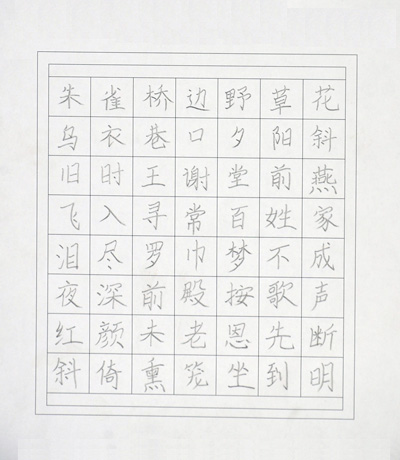 朱雀桥边野草花
乌衣巷口夕阳斜
旧时王谢堂前燕
飞入寻常百姓家
泪尽罗巾梦不成
夜深前殿按歌声
红颜未老恩先断
斜倚熏笼坐到明